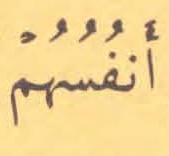 أنفُسُهُمْ